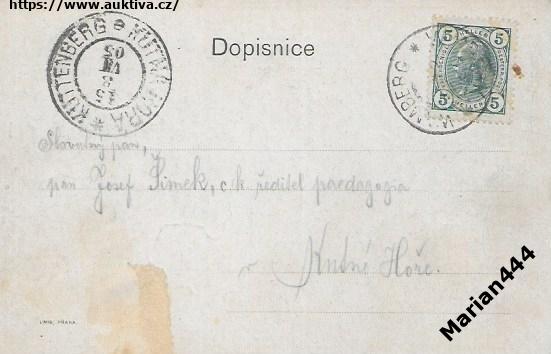 https://www.auktiva.cz/
KUTTENBERG * KUTNÁ HORA *
05
VI
Dopisnice
MBERG *
5 5
HELLER
5 5
Slovutný pan,
pan Josef Šimek, c k ředitel paedagogia
v Kutné Hoře.
UNIE, PRAHA.
Marian444